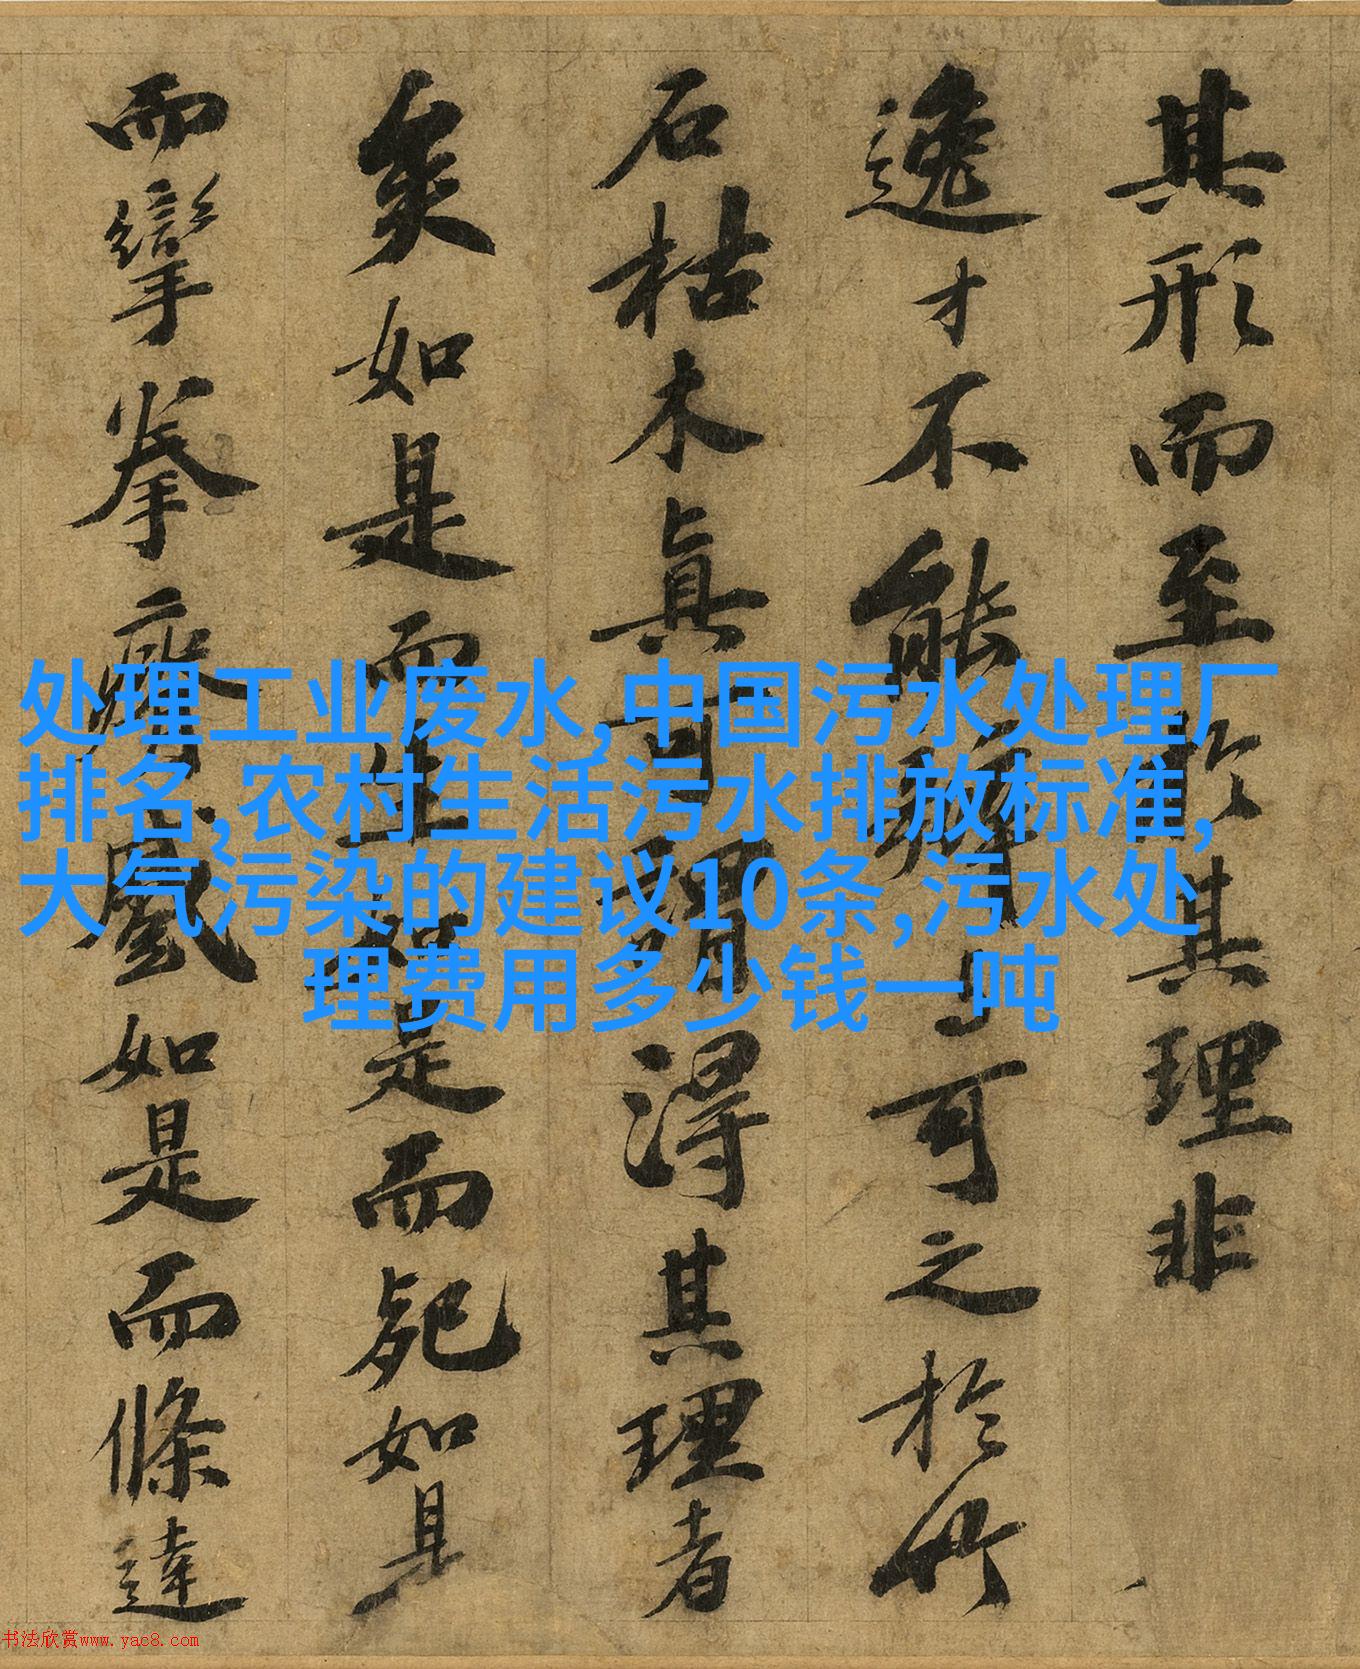 其形而至於其理非
逸才不能辨與可之於竹
石枯木眞可謂得其理者
矣如是而生如是而死如是
而攣拳瘠蹙如是而條達
处理工业废水,中国污水处理厂
排名,农村生活污水排放标准,
大气污染的建议10条,污水处
理费用多少钱一吨
书法欣赏www.yac8.com